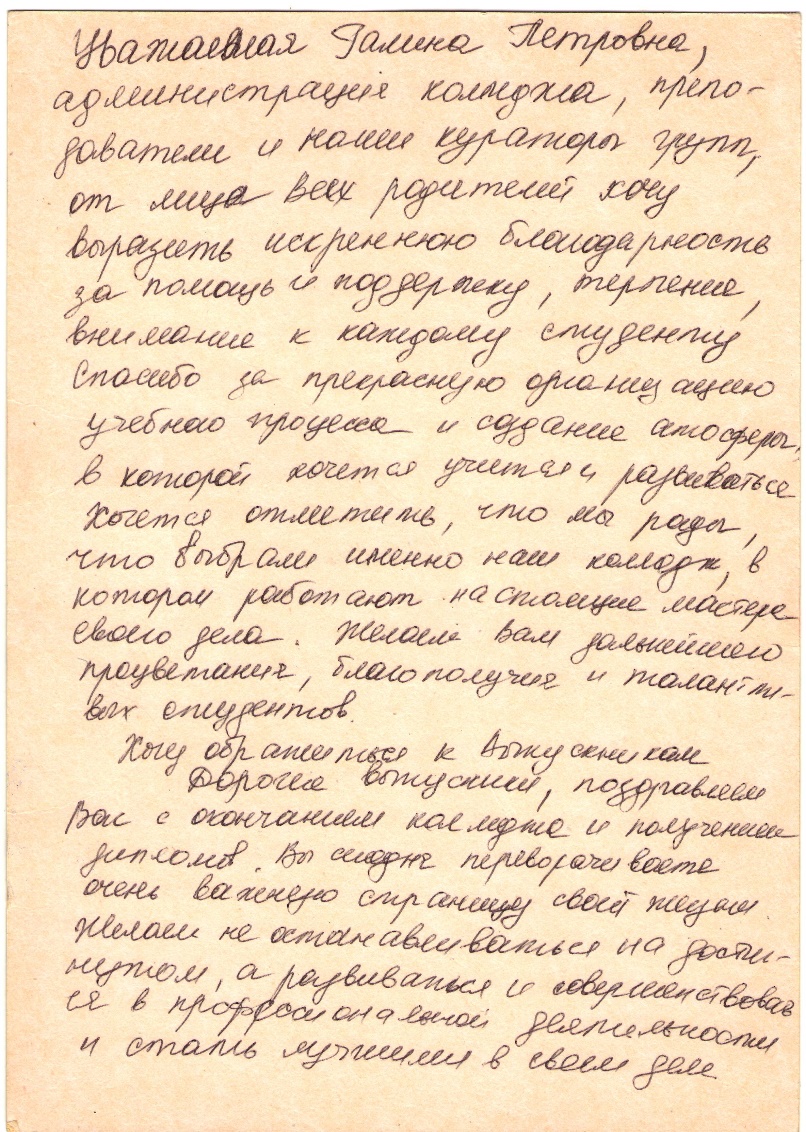 Уважаемая Галина Петровна,
администрация колледжа, препо-
даватели и наши кураторы групп,
от лица всех родителей хочу
выразить искреннюю благодарность
за помощь и поддержку, терпение,
внимание к каждому студенту
Спасибо за прекрасную организацию
учебного процесса и создание атосферы,
в которой хочется учиться и развиваться
Хочется отметить, что мы рады,
что выбрали именно наш колледж, в
котором работают настоящие мастера
своего дела. Желаем Вам дальнейшего
процветания, благополучия и талантли-
вых студентов.
Хочу обратиться к Выпускникам
Дорогие выпускники, поздравляем
Вас с окончанием колледжа и получением
дипломов. Вы сегодня переворачиваете
очень важную страницу своей жизни
Желаем не останавливаться на дости-
гнутом, а развиваться и совершенствовать
ся в профессиональной деятельности
и стать лучшими в своем деле